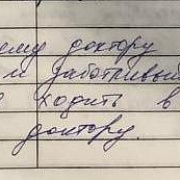 ему доктору
и заботливый
ходить в
доктору.